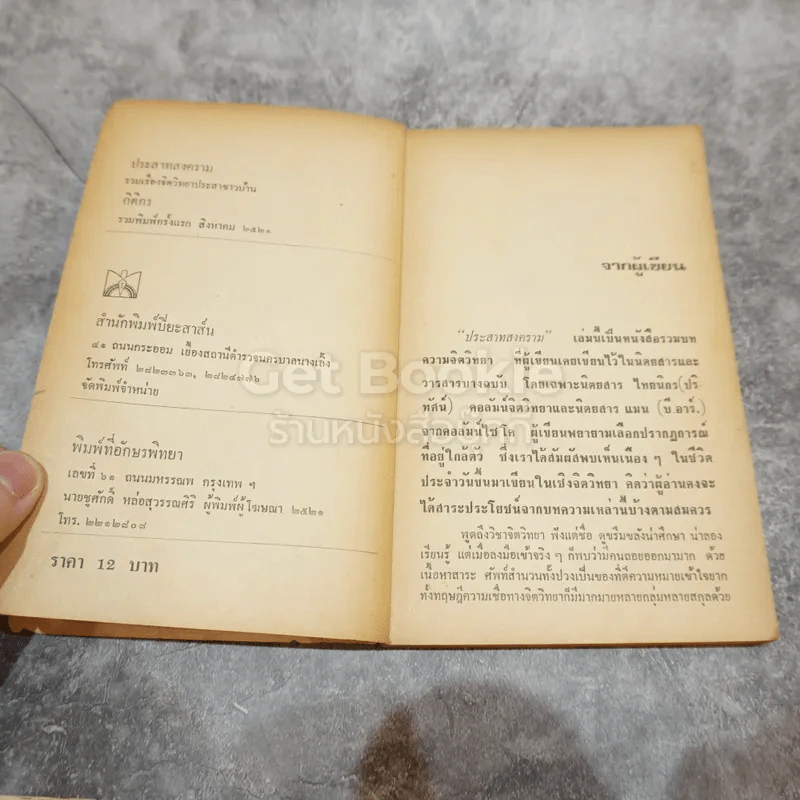 ประสาทสงคราม
รวมเรื่องจิตวิทยาประสาชาวบ้าน
กิติกร
รวมพิมพ์ครั้งแรก สิงหาคม ๒๕๒๑
สำนักพิมพ์ปิยะสาส์น
๔๑ ถนนกระออม เยื้องสถานีตำรวจนครบาลนางเลิ้ง
โทรศัพท์ ๒๘๒๓๓๖๓, ๒๘๒๔๗๗๖
จัดพิมพ์จำหน่าย
พิมพ์ที่อักษรพิทยา
เลขที่ ๖๑ ถนนมหรรณพ กรุงเทพ ฯ
นายชูศักดิ์ หล่อสุวรรณศิริ ผู้พิมพ์ผู้โฆษณา ๒๕๒๑
โทร. ๒๒๑๒๘๐๘
ราคา 12 บาท
จากผู้เขียน
"ประสาทสงคราม" เล่มนี้เป็นหนังสือรวมบท
ความจิตวิทยา ที่ผู้เขียนเคยเขียนไว้ในนิตยสารและ
วารสารบางฉบับ โดยเฉพาะนิตยสาร ไทยนิกร(ปริ
ทัศน์) คอลัมน์จิตวิทยาและนิตยสาร แมน (บี.อาร์.)
จากคอลัมน์ไซโค ผู้เขียนพยายามเลือกปรากฏการณ์
ที่อยู่ใกล้ตัว ซึ่งเราได้สัมผัสพบเห็นเนือง ๆ ในชีวิต
ประจำวันขึ้นมาเขียนในเชิงจิตวิทยา คิดว่าผู้อ่านคงจะ
ได้สาระประโยชน์จากบทความเหล่านี้บ้างตามสมควร
พูดถึงวิชาจิตวิทยา ฟังแต่ชื่อ ดูขรึมขลังน่าศึกษา น่าลอง
เรียนรู้ แต่เมื่อลงมือเข้าจริง ๆ ก็พบว่ามีคนถอยออกมามาก ด้วย
เนื้อหาสาระ ศัพท์สำนวนทั้งปวงเป็นของที่ตีความหมายเข้าใจยาก
ทั้งทฤษฎีความเชื่อทางจิตวิทยาก็มีมากมายหลายกลุ่มหลายสกุลด้วย
Get Bookie
ร้านหนังสือเก่า